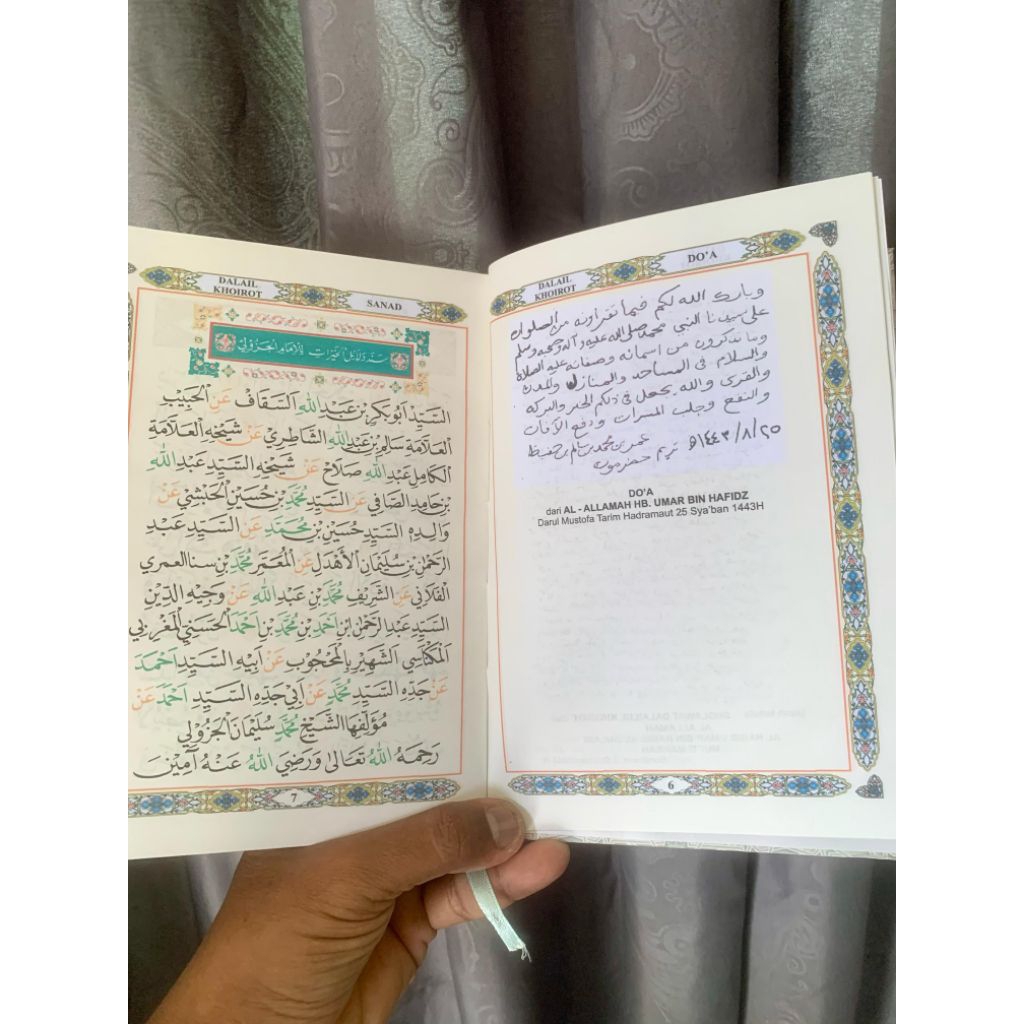 DALAIL
KHOIROT
DO'A
وبارك الله لكم فيما تقرأونه من الصلوات
على سيدنا النبي محمد صلى الله عليه وآله وصحبه وسلم
وما تذكرون من اسمائه وصفاته عليه الصلاة
والسلام في المساجد والمنازل والمدن
والقرى والله يجعل في ذلكم الخير والبركه
والنفع وجلب المسرات ودفع الآفات
عمر بن محمد بن سالم بن حفيظ
تريم حضرموت ٢٥/٨/١٤٤٣هـ
DO'A
dari AL - ALLAMAH HB. UMAR BIN HAFIDZ
Darul Mustofa Tarim Hadramaut 25 Sya'ban 1443H
6
DALAIL
KHOIROT
SANAD
سند دلائل الخيرات للامام الجزولي
السَّيِّدْ أَبُوبَكَرِ بْنِ عَبْدِ اللهِ السَّقَافْ عَنِ الْحَبِيْبْ
الْعَلَّامَةِ سَالِمْ بِنْ عَبْدِ اللهِ الشَّاطِرِيْ عَنْ شَيْخِهِ الْعَلَّامَةِ
الْكَامِلْ عَبْدِ اللهِ صَلَاحْ عَنْ شَيْخِهِ السَّيِّدِ عَبْدِ اللهِ
بْنِ حَامِدِ الصَّافِي عَنِ السَّيِّدِ مُحَمَّدِ بْنِ حُسَيْنِ الْحَبْشِي عَنْ
وَالِدِهِ السَّيِّدِ حُسَيْنِ بْنِ مُحَمَّدٍ عَنِ السَّيِّدِ عَبْدِ
الرَّحْمٰنِ بْنِ سُلَيْمَانِ الْأَهْدَلِ عَنِ الْمُعَمَّرِ مُحَمَّدِ بْنِ سنا العمري
الْفَلَانِي عَنِ الشَّرِيْفِ مُحَمَّدِ بْنِ عَبْدِ اللهِ عَنْ وَجِيْهِ الدِّيْنِ
السَّيِّدِ عَبْدِ الرَّحْمٰنِ ابْنِ اَحْمَدِ بْنِ مُحَمَّدِ بْنِ اَحْمَدَ الْحَسَنِيِّ الْمَغْرِبِي
الْمِكْنَاسِي اَلشَّهِيْرِ بِالْمَحْجُوْبِ عَنْ اَبِيْهِ السَّيِّدِ اَحْمَدَ
عَنْ جَدِّهِ السَّيِّدِ مُحَمَّدْ عَنْ اَبِي جَدِّهِ السَّيِّدِ اَحْمَدَ عَنْ
مُؤَلِّفِهَا الشَّيْخِ مُحَمَّدْ سُلَيْمَانَ الْجَزُوْلِي
رَحِمَهُ اللهُ تَعَالَى وَرَضِيَ اللهُ عَنْهُ آمِيْنَ
7